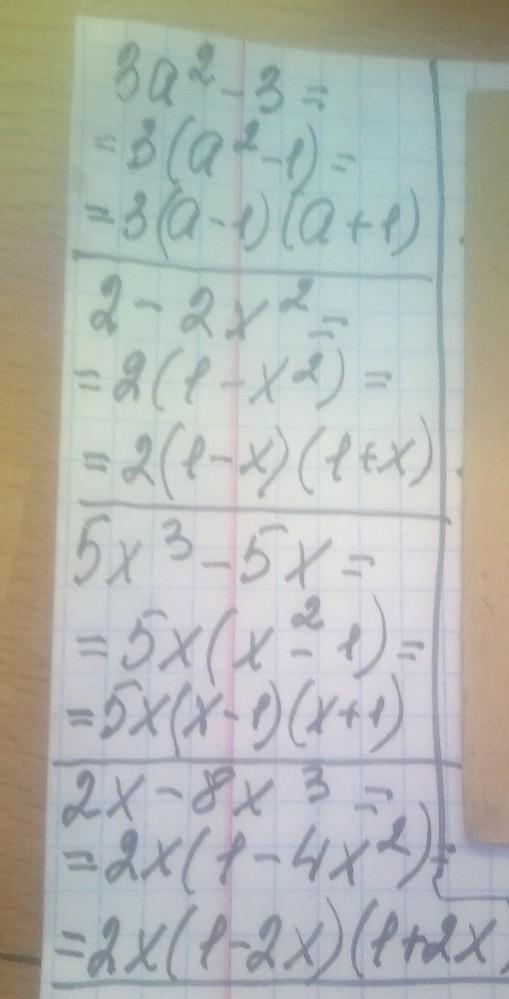 3a² - 3 =
= 3(a² - 1) =
= 3(a - 1)(a + 1)
2 - 2x² =
= 2(1 - x²) =
= 2(1 - x)(1 + x)
5x³ - 5x =
= 5x(x² - 1) =
= 5x(x - 1)(x + 1)
2x - 8x³ =
= 2x(1 - 4x²) =
= 2x(1 - 2x)(1 + 2x)